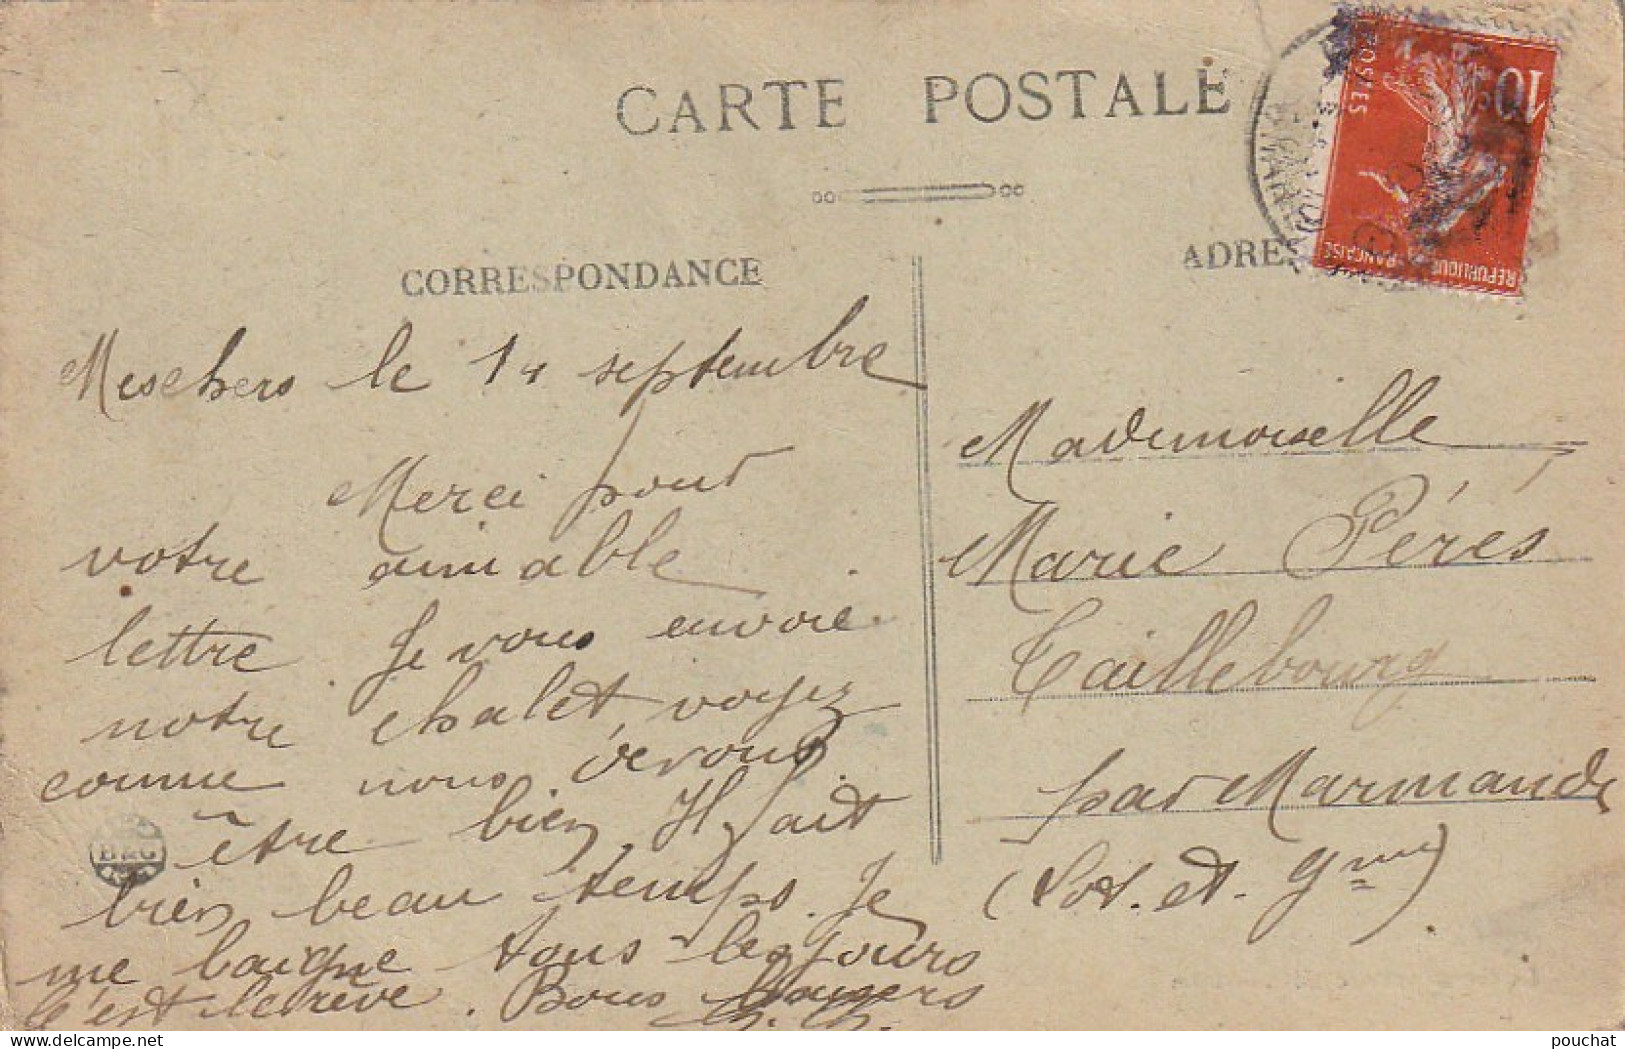 CARTE POSTALE
CORRESPONDANCE
ADRE
10
POSTES
REPUBLIQUE FRANÇAISE
Meschers le 14 septembre
Merci pour
votre aimable
lettre. Je vous envoie
notre chalet, voyez
comme nous devons
être bien Il fait
bien beau temps. Je
me baigne tous les jours
c'est le rêve. Bons baisers
Mademoiselle
Marie Pérés
Taillebourg
par Marmande
(Lot. et. Gne)
B & C
pouchat